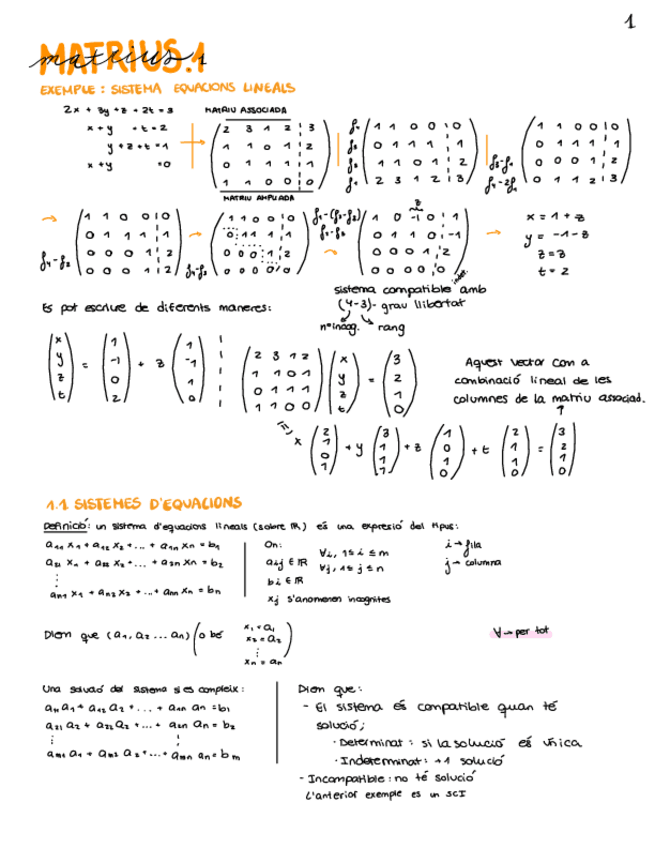 1
MATRIUS.1
matrius
EXEMPLE: SISTEMA EQUACIONS LINEALS
2x + 3y + z + 2t = 3
x + y + t = 2
y + z + t = 1
x + y = 0
MATRIU ASSOCIADA
2 3 1 2 3
1 1 0 1 2
0 1 1 1 1
1 1 0 0 0
MATRIU AMPLIADA
1 1 0 0 0
0 1 1 1 1
1 1 0 1 2
2 3 1 2 3
1 1 0 0 0
0 1 1 1 1
0 0 0 1 2
0 1 1 2 3
f₃-f₁
f₄-2f₁
f₄-f₂
1 1 0 0 0
0 1 1 1 1
0 0 0 1 2
0 0 0 1 2
f₄-f₃
1 1 0 0 0
0 1 1 1 1
0 0 0 1 2
0 0 0 0 0
f₁-(f₂-f₃)
f₂-f₃
z
1 0 -1 0 1
0 1 1 0 -1
0 0 0 1 2
0 0 0 0 0
indet.
x = 1 + z
y = -1 - z
z = z
t = 2
sistema compatible amb
(4-3)- grau llibertat
nº incòg. rang
Es pot escriure de diferents maneres:
x 1 1
y = -1 + z -1
z 0 1
t 2 0
2 3 1 2 x 3
1 1 0 1 y = 2
0 1 1 1 z 1
1 1 0 0 t 0
Aquest vector com a
combinació lineal de les
columnes de la matriu associad.
x (2 1 0 1) + y (3 1 1 1) + z (1 0 1 0) + t (2 1 1 0) = (3 2 1 0)
1.1 SISTEMES D'EQUACIONS
Definició: un sistema d'equacions lineals (sobre ℝ) és una expresió del tipus:
a₁₁ x₁ + a₁₂ x₂ + ... + a₁ₙ xₙ = b₁
a₂₁ x₁ + a₂₂ x₂ + ... + a₂ₙ xₙ = b₂
⋮
aₘ₁ x₁ + aₘ₂ x₂ + ... + aₘₙ xₙ = bₙ
On:
aij ∈ ℝ ∀i, 1≤ i ≤ m
∀j, 1≤ j ≤ n
bi ∈ ℝ
xj s'anomenen incògnites
i → fila
j → columna
Diem que (a₁, a₂ ... an) (o bé
x₁ = a₁
x₂ = a₂
⋮
xn = an)
∀ → per tot
Una solució del sistema si es compleix:
a₁₁ a₁ + a₁₂ a₂ + ... + a₁n an = b₁
a₂₁ a₂ + a₂₂ a₂ + ... + a₂n an = b₂
⋮
am₁ a₁ + am₂ a₂ + ... + amn an = bm
Diem que:
- El sistema és compatible quan té
solució;
· Determinat: si la solució és única
· Indeterminat: +1 solució
- Incompatible: no té solució
L'anterior exemple és un SCI